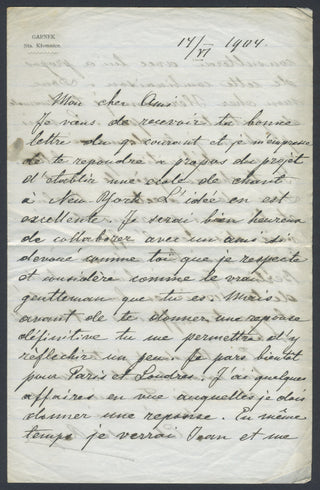 GARNEK
Sta. Kłomnice.
14/VI 1904.
Mon cher Ami
Je viens de recevoir ta bonne
lettre du 9 courant et je m'empresse
de te repondre a propos du projet
d'établir une ecole de chant
à New York. L'idée en est
excellente. Je serai bien heureux
de collaborer avec un ami si
devoué comme toi que je respecte
et considère comme le vrai
gentleman que tu es. Mais
avant de te donner une reponse
définitive tu me permettra d'y
réflechir un peu. Je pars bientot
pour Paris et Londres. J'ai quelques
affaires en vue auxquelles je dois
donner une reponse. En même
temps je verrai Jean et me